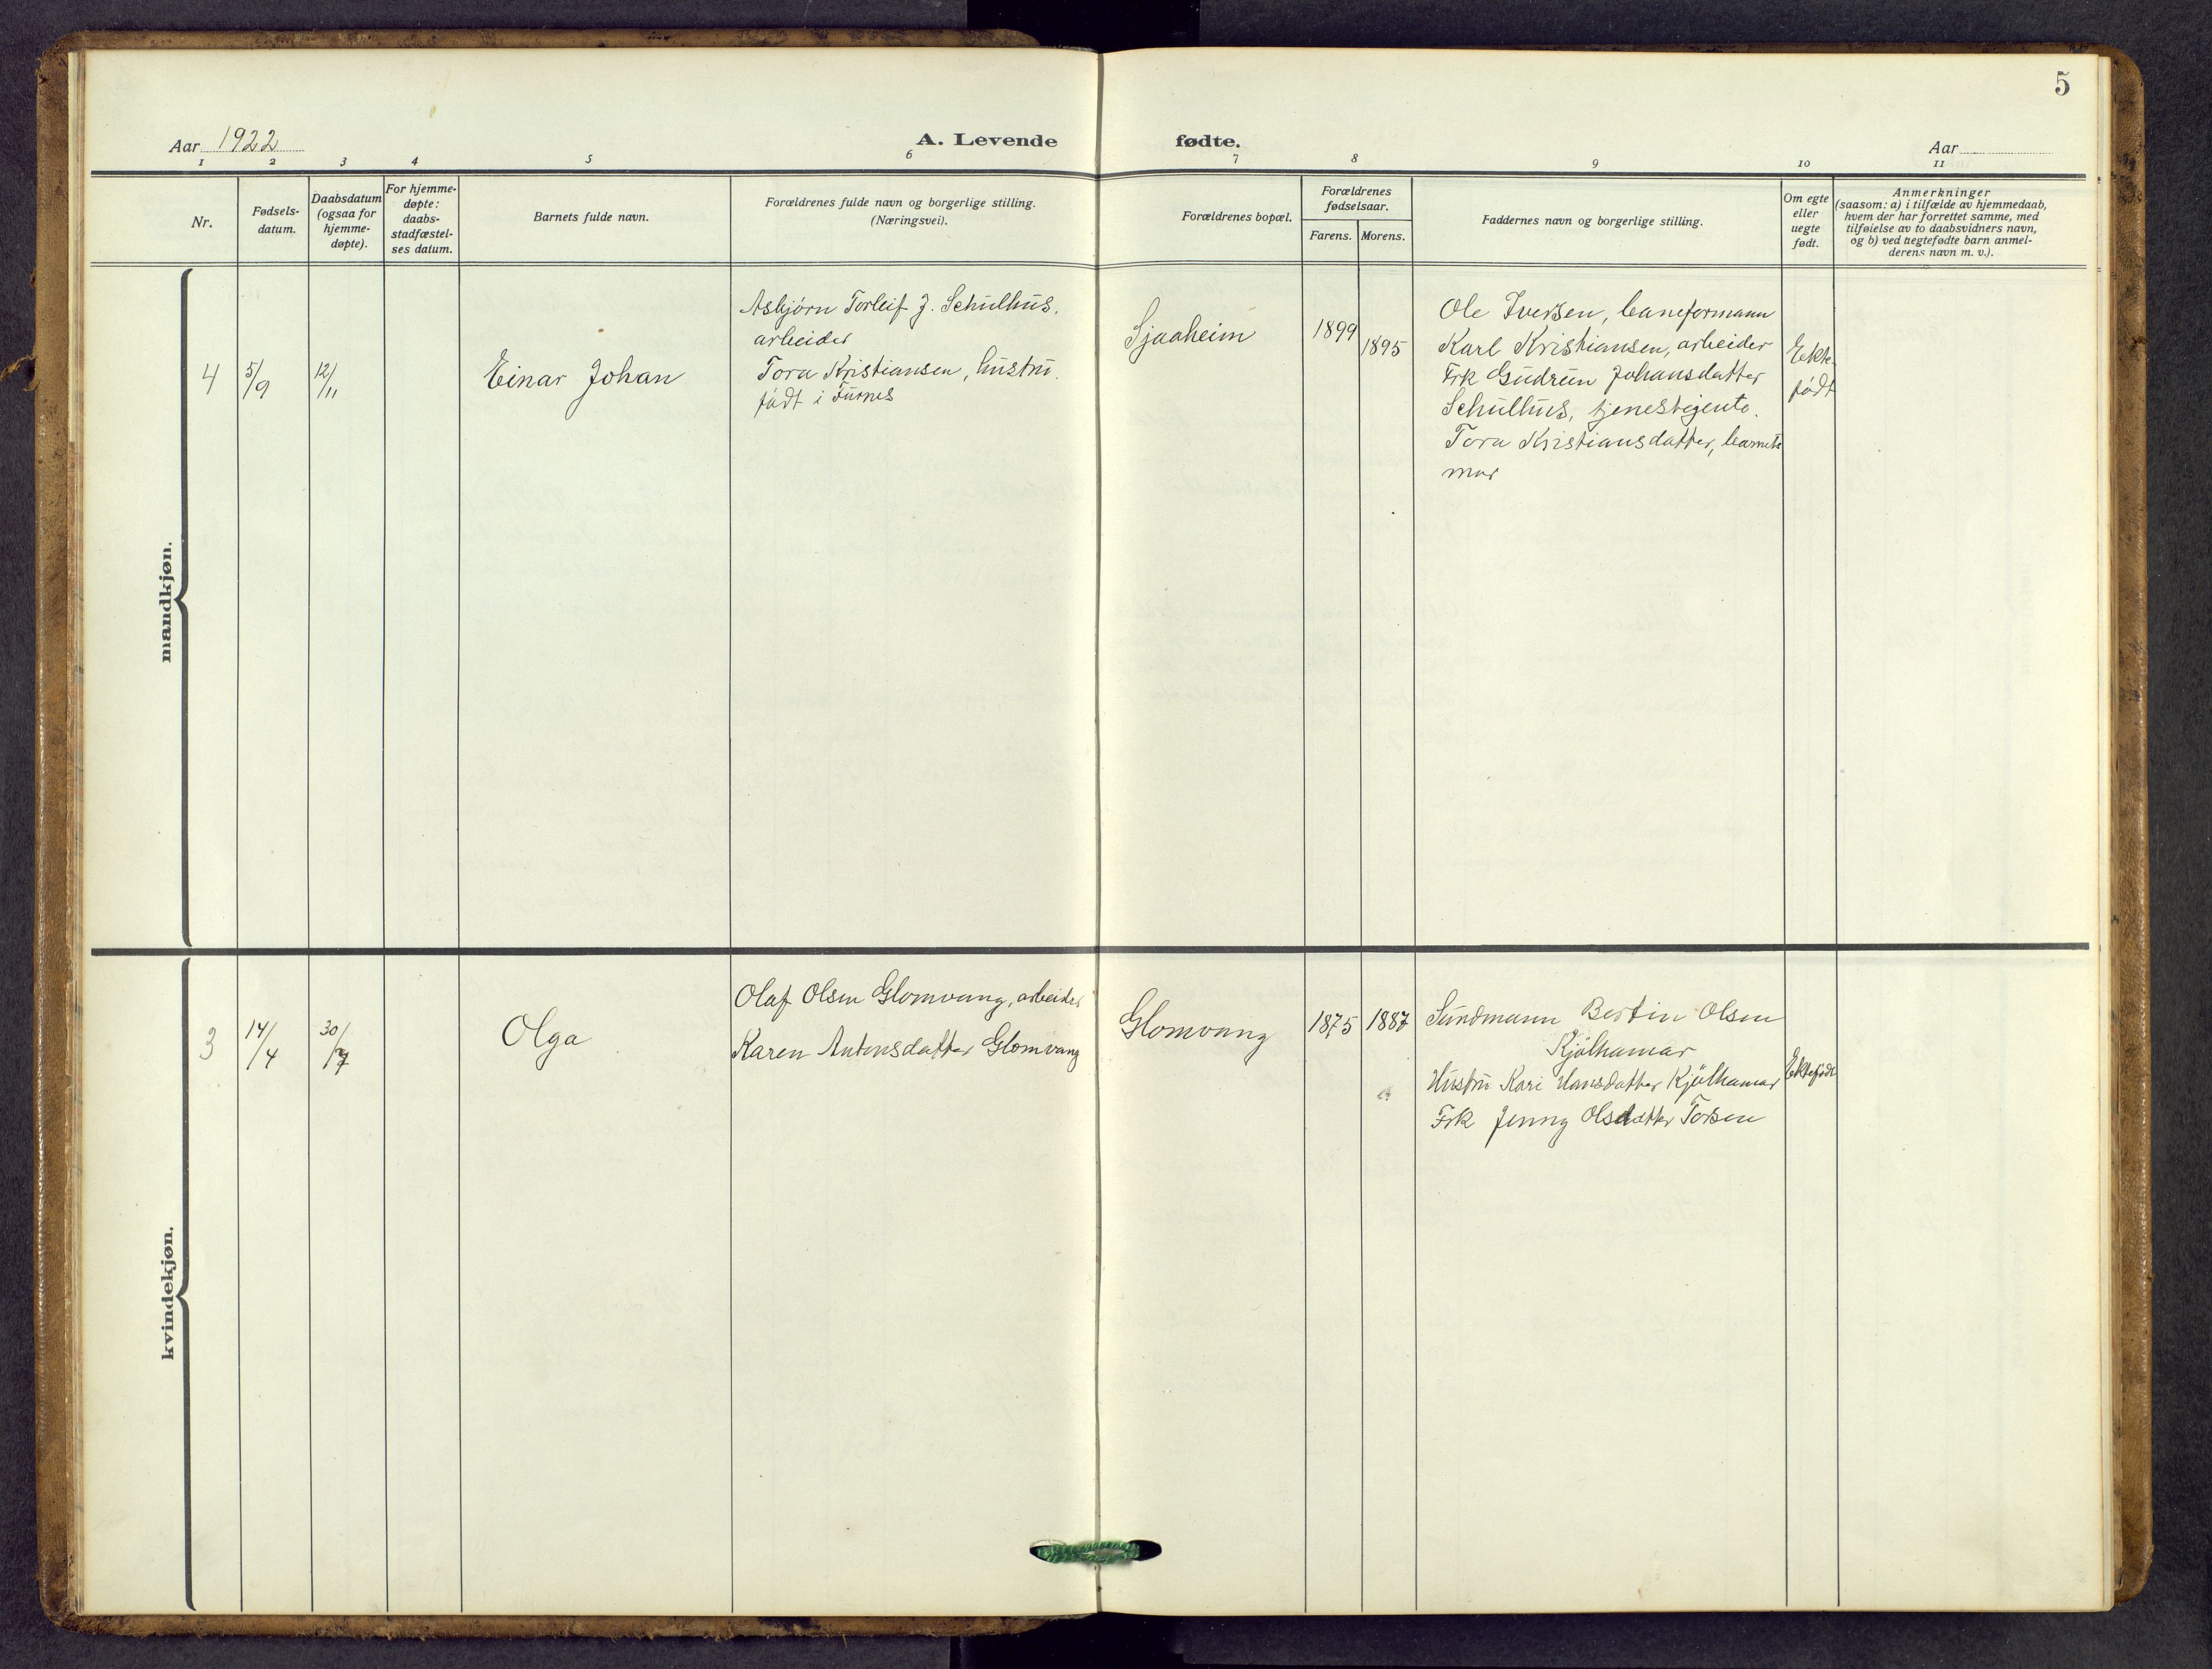 5
Aar 1922
A. Levende fødte.
Aar
1 2 3 4 5 6 7 8 9 10 11
Nr.
Fødsels-
datum.
Daabsdatum
(ogsaa for
hjemme-
døpte).
For hjemme-
døpte:
daabs-
stadfæstel-
ses datum.
Barnets fulde navn.
Forældrenes fulde navn og borgerlige stilling.
(Næringsvei).
Forældrenes bopæl.
Forældrenes
fødselsaar.
Farens. Morens.
Faddernes navn og borgerlige stilling.
Om egte
eller
uegte
født.
Anmerkninger
(saasom: a) i tilfælde av hjemmedaab,
hvem der har forrettet samme, med
tilføielse av to daabsvidners navn,
og b) ved uegtefødte barn anmel-
derens navn m. v.).
mandkjøn.
4
5/9
12/11
Einar Johan
Asbjørn Torleif J. Schulhus,
arbeider
Tora Kristiansen, hustru.
født i Furnes
Sjaaheim
1899
1895
Ole Iversen, baneformann
Karl Kristiansen, arbeider
Frk Gudrun Johansdatter
Schulhus, tjenestejente.
Tora Kristiansdatter, barnets
mor
Ekte
født
kvindekjøn.
3
14/4
30/7
Olga
Olaf Olsen Glomvang, arbeider
Karen Antonsdatter Glomvang
Glomvang
1875
1887
Sundmann Bertin Olsen
Kjølhamar
Hustru Kari Hansdatter Kjølhamar
Frk Jenny Olsdatter Torsen
Ektefødt